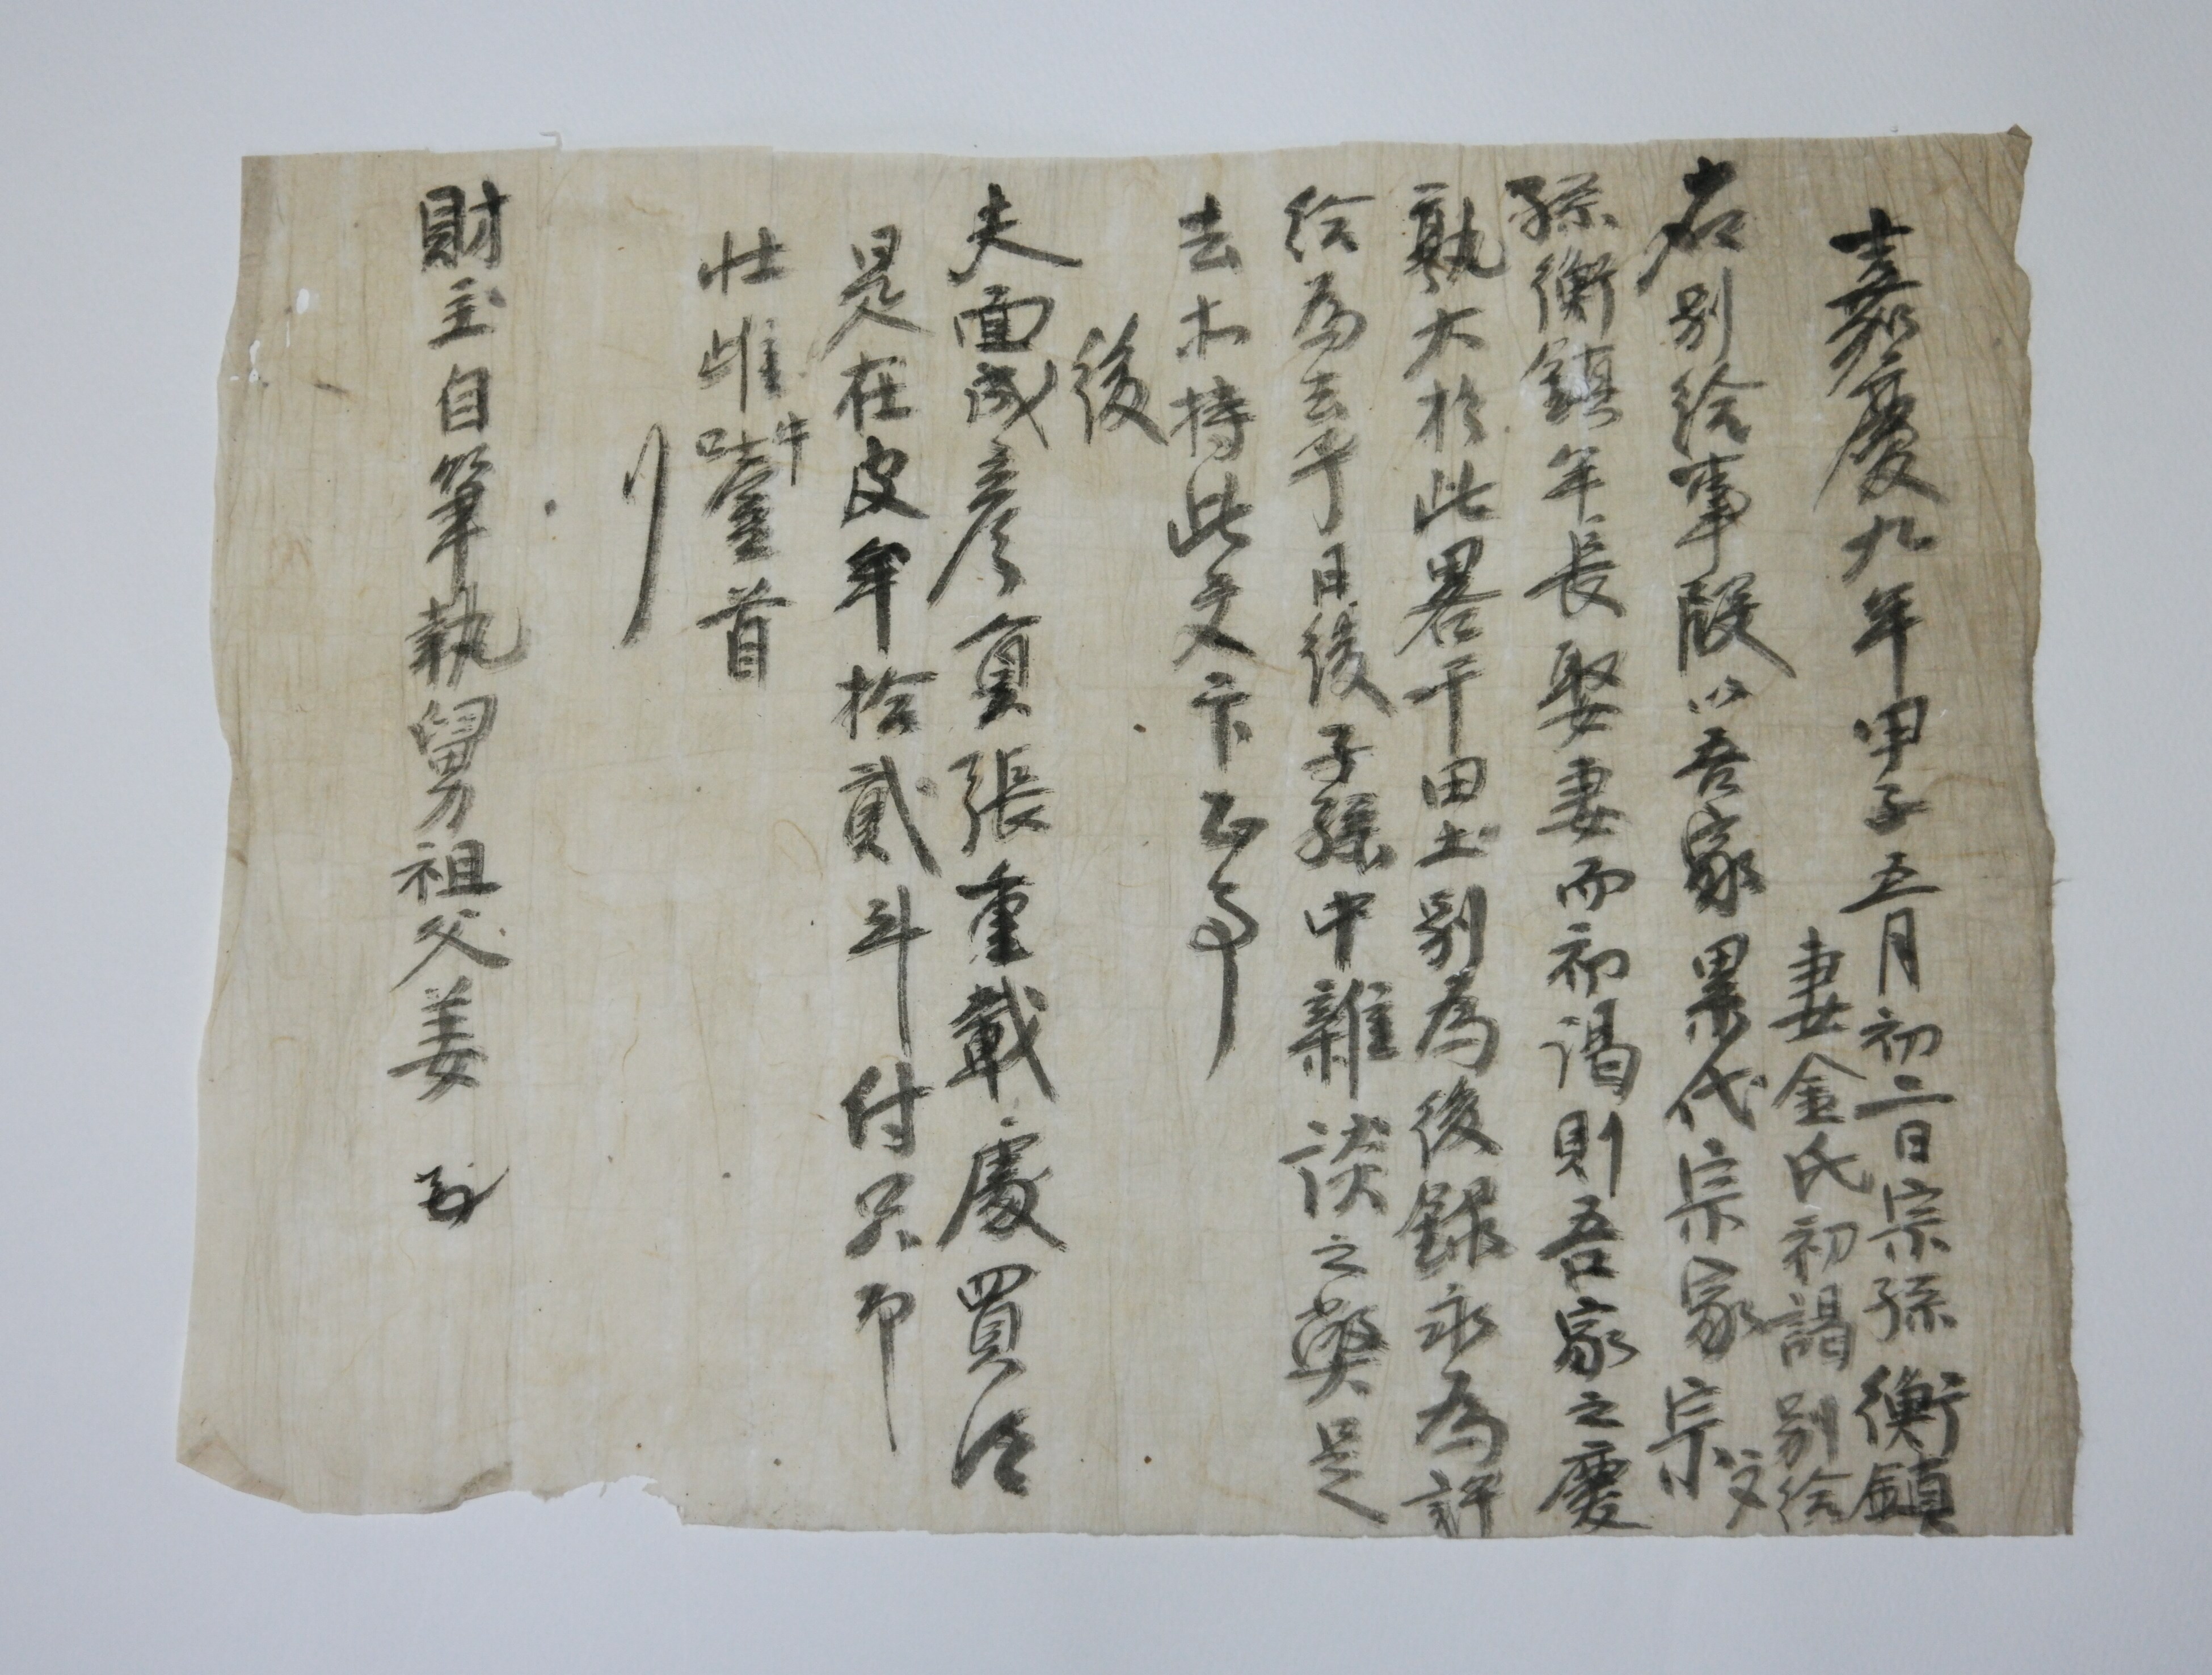 嘉慶九年甲子五月初二日宗孫衡鎭
妻金氏初謁別給文
右別給事段以吾家累代宗家宗
孫衡鎭年長娶妻而初謁則吾家之慶
孰大於此畧干田土別爲後錄永爲許
給爲去乎日後子孫中雜談之獘是
去木持此文卞正事
後
夫面成彦員張重載處買得
是在皮牟拾貳斗付只印
牡雌牛首
財主自筆執舅祖父姜